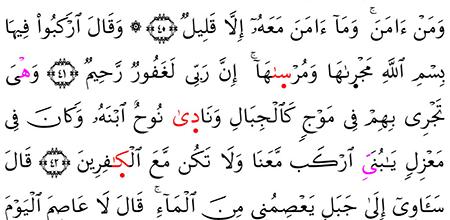 وَمَنْ ءَامَنَ ۚ وَمَآ ءَامَنَ مَعَهُۥٓ إِلَّا قَلِيلٌ ﴿٤٠﴾ ۞ وَقَالَ ٱرْكَبُوا۟ فِيهَا
بِسْمِ ٱللَّهِ مَجْر۪ىٰهَا وَمُرْسَىٰهَآ ۚ إِنَّ رَبِّى لَغَفُورٌ رَّحِيمٌ ﴿٤١﴾ وَهْىَ
تَجْرِى بِهِمْ فِى مَوْجٍ كَٱلْجِبَالِ وَنَادَىٰ نُوحٌ ٱبْنَهُۥ وَكَانَ فِى
مَعْزِلٍ يَـٰبُنَىِّ ٱرْكَب مَّعَنَا وَلَا تَكُن مَّعَ ٱلْكَـٰفِرِينَ ﴿٤٢﴾ قَالَ
سَـَٔاوِىٓ إِلَىٰ جَبَلٍ يَعْصِمُنِى مِنَ ٱلْمَآءِ ۚ قَالَ لَا عَاصِمَ ٱلْيَوْمَ